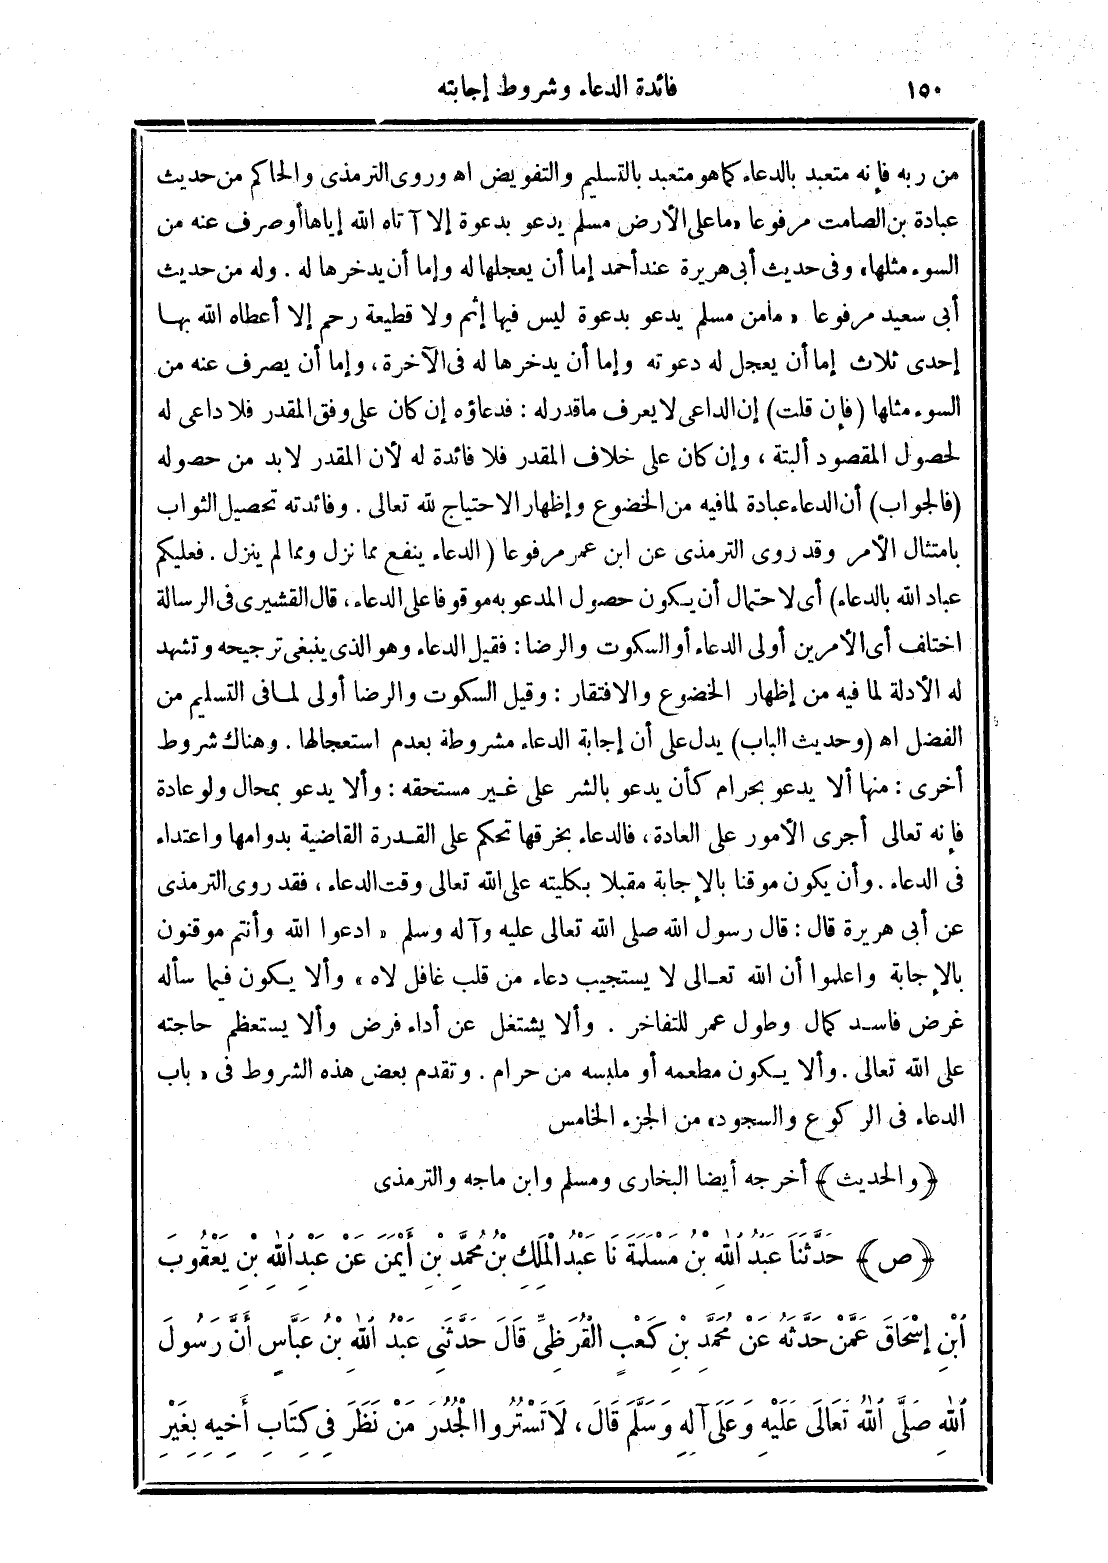 ١٥٠ فائدة الدعاء وشروط إجابته
من ربه فإنه متعبد بالدعاء كما هو متعبد بالتسليم والتفويض اه وروى الترمذى والحاكم من حديث
عبادة بن الصامت مرفوعا «ماعلى الأرض مسلم يدعو بدعوة إلا آتاه الله إياها أو صرف عنه من
السوء مثلها» وفى حديث أبى هريرة عند أحمد إما أن يعجلها له وإما أن يدخرها له . وله من حديث
أبى سعيد مرفوعا « مامن مسلم يدعو بدعوة ليس فيها إثم ولا قطيعة رحم إلا أعطاه الله بها
إحدى ثلاث إما أن يعجل له دعوته وإما أن يدخرها له فى الآخرة، وإما أن يصرف عنه من
السوء مثلها (فإن قلت) إن الداعى لا يعرف ماقدر له : فدعاؤه إن كان على وفق المقدر فلا داعى له
لحصول المقصود ألبتة ، وإن كان على خلاف المقدر فلا فائدة له لأن المقدر لابد من حصوله
(فالجواب) أن الدعاء عبادة لمافيه من الخضوع وإظهار الاحتياج لله تعالى . وفائدته تحصيل الثواب
بامتثال الأمر وقد روى الترمذى عن ابن عمر مرفوعا (الدعاء ينفع مما نزل ومما لم ينزل . فعليكم
عباد الله بالدعاء) أى لاحتمال أن يكون حصول المدعو به موقوفا على الدعاء، قال القشيرى فى الرسالة
اختلف أى الأمرين أولى الدعاء أو السكوت والرضا : فقيل الدعاء وهو الذى ينبغى ترجيحه وتشهد
له الأدلة لما فيه من إظهار الخضوع والافتقار : وقيل السكوت والرضا أولى لما فى التسليم من
الفضل اه (وحديث الباب) يدل على أن إجابة الدعاء مشروطة بعدم استعجالها . وهناك شروط
أخرى : منها ألا يدعو بحرام كأن يدعو بالشر على غير مستحقه : وألا يدعو بمحال ولو عادة
فإنه تعالى أجرى الأمور على العادة، فالدعاء بخرقها تحكم على القدرة القاضية بدوامها واعتداء
فى الدعاء . وأن يكون موقنا بالإجابة مقبلا بكليته على الله تعالى وقت الدعاء ، فقد روى الترمذى
عن أبى هريرة قال : قال رسول الله صلى الله تعالى عليه وآله وسلم « ادعوا الله وأنتم موقنون
بالإجابة واعلموا أن الله تعالى لا يستجيب دعاء من قلب غافل لاه » وألا يكون فيما سأله
غرض فاسد كمال وطول عمر للتفاخر . وألا يشتغل عن أداء فرض وألا يستعظم حاجته
على الله تعالى . وألا يكون مطعمه أو ملبسه من حرام . وتقدم بعض هذه الشروط فى « باب
الدعاء فى الركوع والسجود» من الجزء الخامس
﴿والحديث﴾ أخرجه أيضا البخارى ومسلم وابن ماجه والترمذى
﴿ص﴾ حَدَّثَنَا عَبْدُ اللهِ بْنُ مَسْلَمَةَ نَا عَبْدُ الْمَلِكِ بْنُ مُحَمَّدِ بْنِ أَيْمَنَ عَنْ عَبْدِ اللهِ بْنِ يَعْقُوبَ
ابْنِ إِسْحَاقَ عَمَّنْ حَدَّثَهُ عَنْ مُحَمَّدِ بْنِ كَعْبٍ الْقُرَظِىِّ قَالَ حَدَّثَنِى عَبْدُ اللهِ بْنُ عَبَّاسٍ أَنَّ رَسُولَ
اللهِ صَلَّى اللهُ تَعَالَى عَلَيْهِ وَعَلَى آلِهِ وَسَلَّمَ قَالَ، لَا تَسْتُرُوا الْجُدُرَ مَنْ نَظَرَ فِى كِتَابِ أَخِيهِ بِغَيْرِ